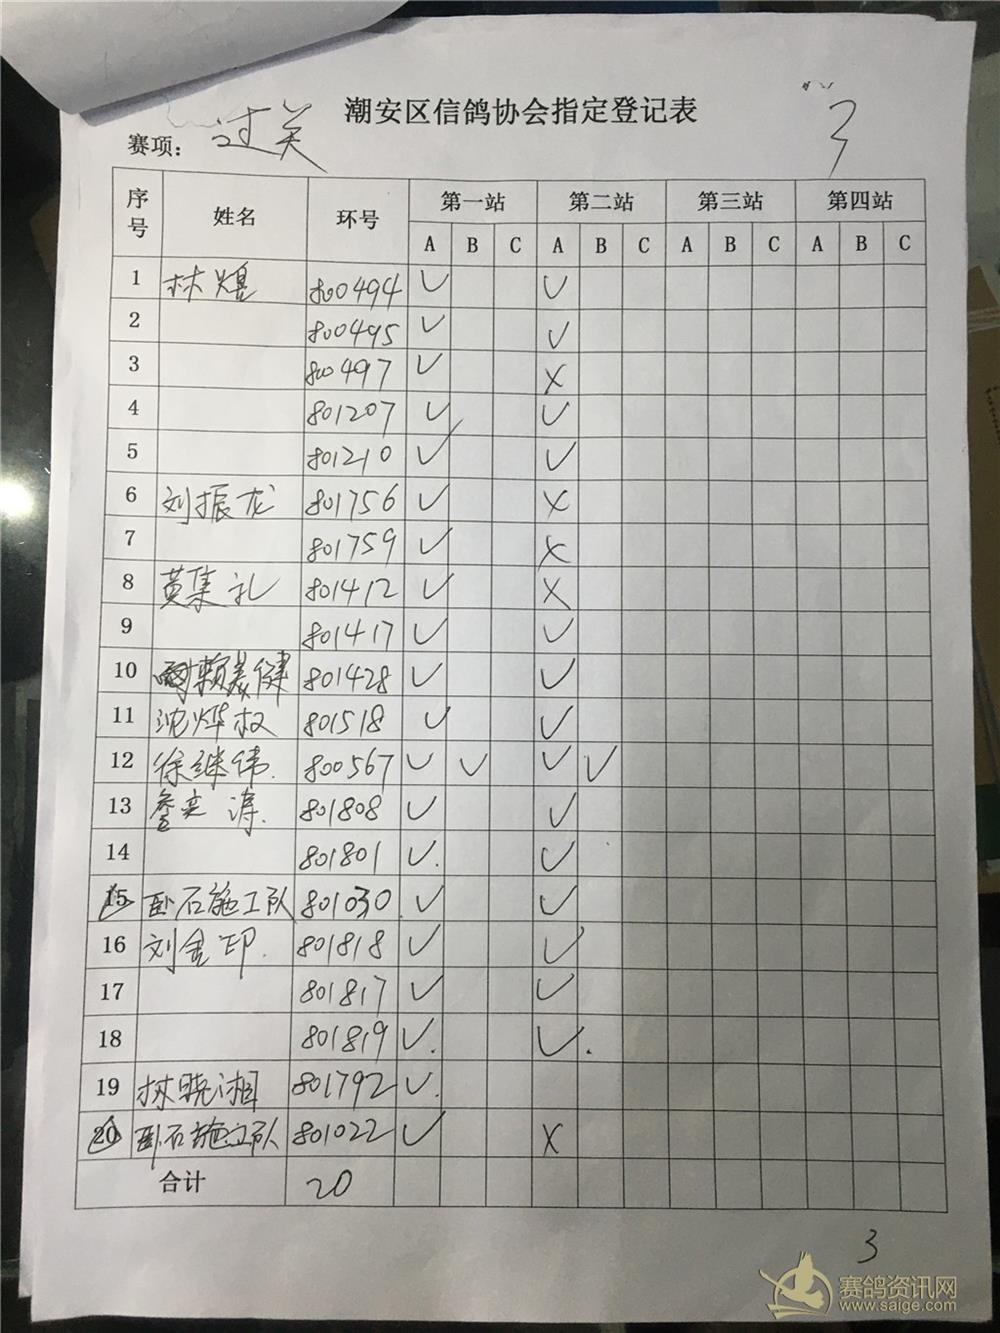 潮安区信鸽协会指定登记表
3
赛项: 过关
序号 姓名 环号 第一站 第二站 第三站 第四站
A B C A B C A B C A B C
1 林煜 800494 ✓ ✓
2 800495 ✓ ✓
3 800497 ✓ ×
4 801207 ✓ ✓
5 801210 ✓ ✓
6 刘振龙 801756 ✓ ×
7 801759 ✓ ×
8 黄集礼 801412 ✓ ×
9 801417 ✓ ✓
10 赖美健 801428 ✓ ✓
11 沈烨权 801518 ✓ ✓
12 徐继伟. 800567 ✓ ✓ ✓ ✓
13 詹奕涛. 801808 ✓ ✓
14 801801 ✓. ✓
15 卧石施工队 801030 ✓ ✓
16 刘金印. 801818 ✓ ✓
17 801817 ✓ ✓
18 801819 ✓. ✓.
19 林晓湘 801792 ✓.
20 卧石施工队 801022 ✓ ×
合计 20
3
赛鸽资讯网
www.saige.com